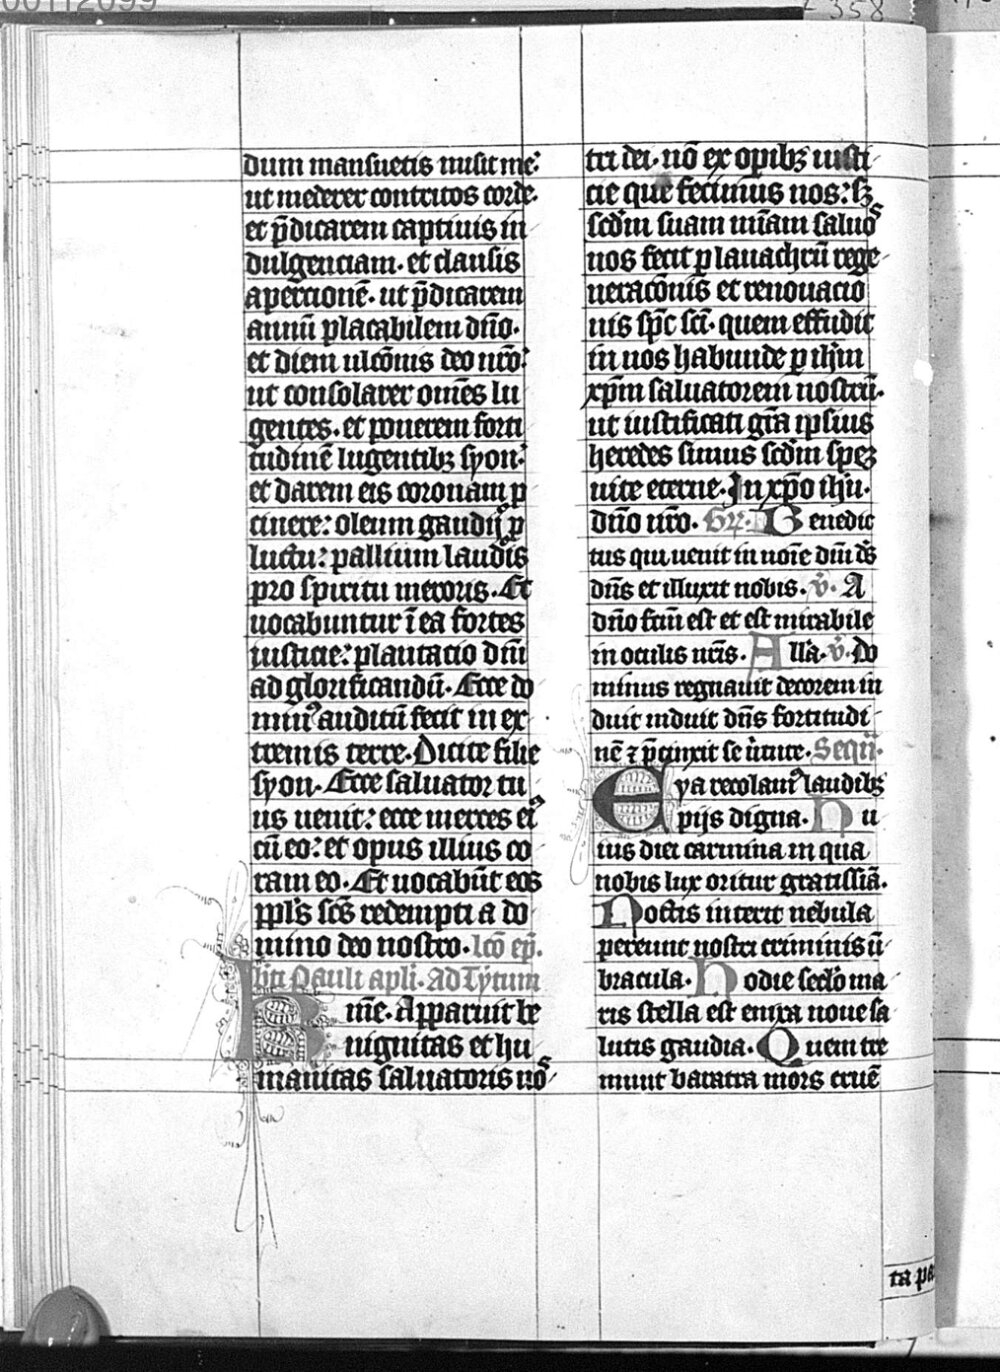 00112099
358
dum mansuetis misit me:
ut mederer contritos corde.
et p̄dicarem captiuis in
dulgenciam. et clausis
apercionē. ut p̄dicarem
annū placabilem dn̄o.
et diem ulcōnis deo nr̄o:
ut consolarer om̄es lu
gentes. et ponerem forti
tudinē lugentibꝫ syon:
et darem eis coronam p
cinere: oleum gaudij p
luctu: pallium laudis
pro spiritu meroris. Et
uocabuntur ī ea fortes
iusticie: plantacio dn̄i
ad glorificandū. Ecce do
minꝰ auditū fecit in ex
tremis terre. Dicite filie
syon. Ecce saluator tu
us uenit: ecce merces eiꝰ
cū eo: et opus illius co
ram eo. Et uocabūt eos
ppl̄s sc̄s redempti a do
mino deo nostro. lc̄o ep̄.
bt̄i Pauli apli. Ad Tytum
Km̄e. Apparuit be
nignitas et hu
manitas saluatoris no
tri dei. nō ex opibꝫ iusti
cie que fecimus nos: sꝫ
scd̄m suam mīam saluos
nos fecit p lauachrū rege
neracōnis et renouacio
nis sp̄c sc̄i. quem effudit
in nos habunde p ih̄m
xp̄m saluatorem nostrū.
ut iustificati gr̄a ipsius
heredes simus scd̄m speꝫ
uite eterne. In xp̄o ih̄u.
dn̄o nr̄o. Gr̄. Benedic
tus qui uenit in noīe dn̄i ds̄
dn̄s et illuxit nobis. v̄. A
dn̄o fcm̄ est et est mirabile
in oculis nr̄is. All̄a. v̄. Do
minus regnauit decorem in
duit induit dn̄s fortitudi
nē ⁊ p̄cinxit se ūtute. Sequē.
Eya recolamꝰ laudibꝫ
pijs digna. Hu
ius diei carmina in qua
nobis lux oritur gratissīa.
Noctis interit nebula
pereunt nostri criminis ū
bracula. Hodie secl̄o ma
ris stella est enixa noue sa
lutis gaudia. Quem tre
munt baratra mors cruē
ta pa